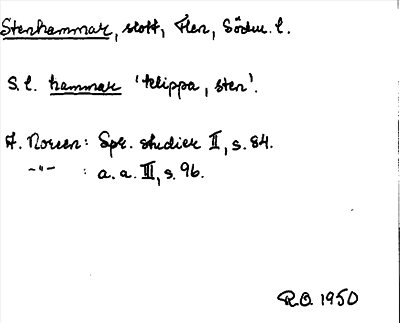 Stenhammar, slott, Flen, Södm. l.
S. l. hammar 'klippa, sten'.
A. Noreen: Spr. studier II, s. 84.
-"- : a. a. III, s. 96.
R.O. 1950